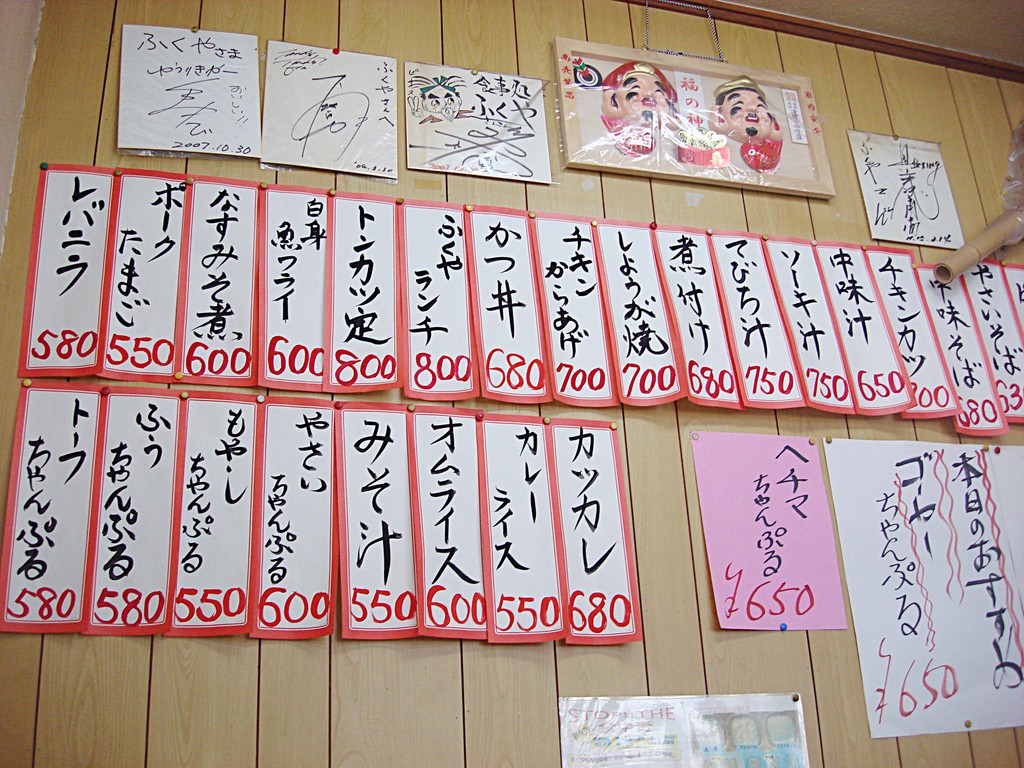 ふくやさま
やうりきやー
おいしい!!
2007.10.30
ふくやさんへ
食事処
ふくや
福の神
レバニラ
580
ポーク
たまご
550
なすみそ煮
600
白身
魚フライ
600
トンカツ定
800
ふくや
ランチ
800
かつ丼
680
チキン
からあげ
700
しょうが焼
700
煮付け
680
てびち汁
750
ソーキ汁
750
中味汁
650
チキンカツ
700
中味そば
680
やさいそば
630
トーフ
ちゃんぷる
580
ふう
ちゃんぷる
580
もやし
ちゃんぷる
550
やさい
ちゃんぷる
600
みそ汁
550
オムライス
600
カレー
ライス
550
カツカレ
680
ヘチマ
ちゃんぷる
¥650
本日のおすすめ
ゴーヤー
ちゃんぷる
¥650
STOP! THE